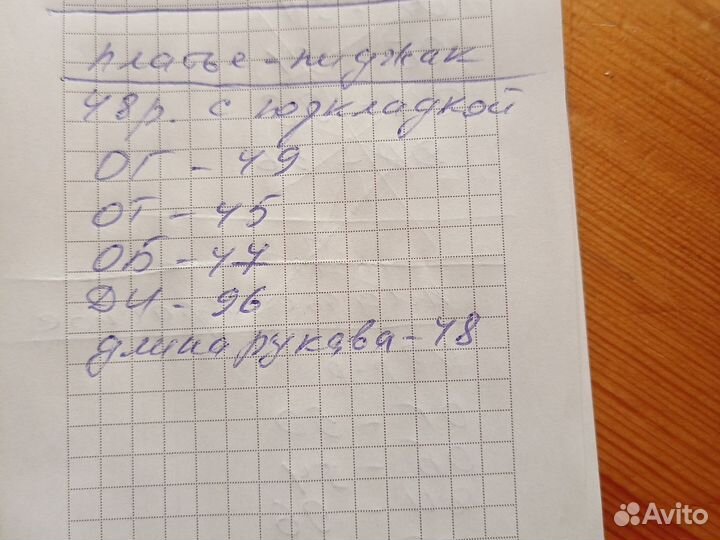 платье-пиджак
48р. с подкладкой
ОГ - 49
ОТ - 45
ОБ - 47
ДИ - 96
длина рукава - 48
Avito